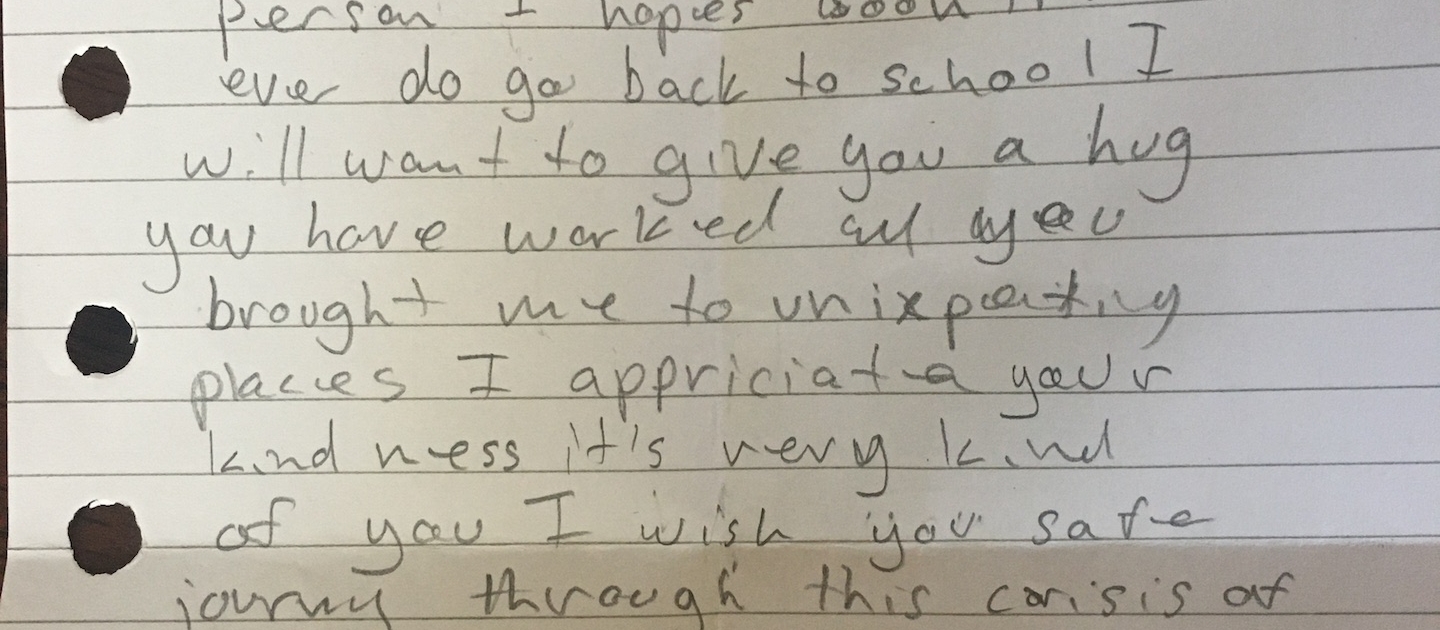 person I hopes
ever do go back to school I
will want to give you a hug
you have worked all you
brought me to unixpecting
places I appriciate your
kindness it's very kind
of you I wish you safe
journy through this corisis of